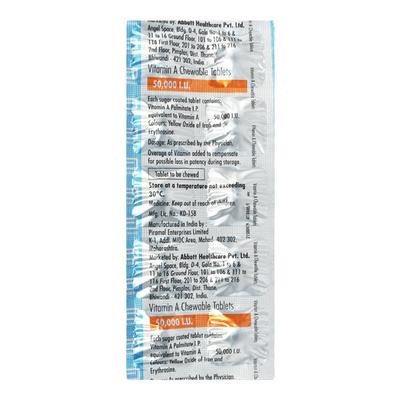 Marketed by: Abbott Healthcare Pvt. Ltd.
Angel Space, Bldg. D-4, Gala No. 1 to 6 &
11 to 16 Ground Floor, 101 to 106 & 111 to
116 First Floor, 201 to 206 & 211 to 216
2nd Floor, Pimplas, Dist. Thane.
Bhiwandi - 421 302, India
Vitamin A Chewable Tablets
50,000 I.U.
Each sugar coated tablet contains:
Vitamin A Palmitate I.P.
equivalent to Vitamin A 50,000 I.U.
Colours: Yellow Oxide of Iron and
Erythrosine.
Dosage: As prescribed by the Physician.
Overage of Vitamin added to compensate
for possible loss in potency during storage.
Tablet to be chewed
Store at a temperature not exceeding
30°C.
Medicine: Keep out of reach of children.
Mfg. Lic. No.: KD-158
Manufactured in India by:
Piramal Enterprises Limited
K-1, Addl. MIDC Area, Mahad 402 302,
Maharashtra.
Marketed by: Abbott Healthcare Pvt. Ltd.
Angel Space, Bldg. D-4, Gala No. 1 to 6 &
11 to 16 Ground Floor, 101 to 106 & 111 to
116 First Floor, 201 to 206 & 211 to 216
2nd Floor, Pimplas, Dist. Thane.
Bhiwandi - 421 302, India
Vitamin A Chewable Tablets
50,000 I.U.
Each sugar coated tablet contains:
Vitamin A Palmitate I.P.
equivalent to Vitamin A 50,000 I.U.
Colours: Yellow Oxide of Iron and
Erythrosine.
Dosage: As prescribed by the Physician.